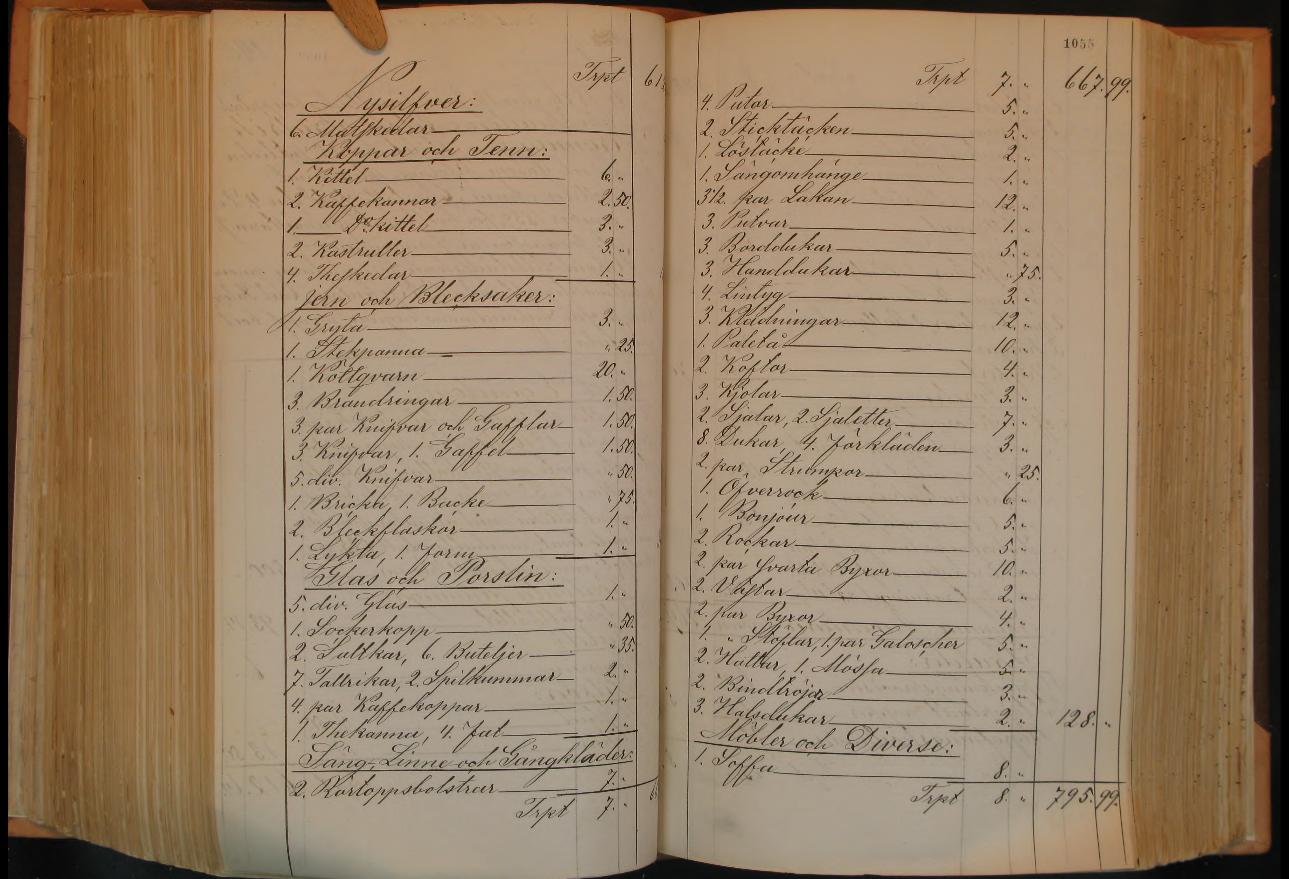 Trpt 61
Nysilfver:
6. Matskedar
Koppar och Tenn:
1. Kittel 6. "
2. Kaffekannor 2.50.
1. Do kittel 3. "
2. Kastruller 3. "
4. Theskedar 1. "
Jern och Blecksaker:
1. Gryta 3. "
1. Stekpanna " 25.
1. Köttqvarn 20. "
3. Brandringar 1.50.
3. par Knifvar och Gafflar 1.50.
3. Knifvar, 1. Gaffel 1.50.
5. div. Knifvar " 50.
1. Bricka, 1. Backe " 75.
2. Bleckflaskor 1. "
1. Lykta, 1. Form 1. "
Glas och Porslin:
5. div. Glas 1. "
1. Sockerkopp " 50.
2. Saltkar, 6. Buteljer " 35.
7. Tallrikar, 2. Spilkummar 2. "
4. par Kaffekoppar 1. "
1. Thekanna, 4. Fat 1. "
Säng-, Linne och Gångkläder:
2. Kortoppsbolstrar 7. "
Trpt 7. " 6
1055
Trpt 7. " 667.99.
4. Putor 5. "
2. Sticktäcken 5. "
1. Löstäcke 2. "
1. Sängomhänge 1. "
3 1/2. par Lakan 12. "
3. Putvar 1. "
3. Borddukar 5. "
3. Handdukar " 75.
4. Lintyg 3. "
3. Klädningar 12. "
1. Paletå 10. "
2. Koftor 4. "
3. Kjolar 3. "
2. Sjalar, 2. Sjaletter 7. "
8. Dukar, 4. Förkläden 3. "
2. par, Strumpor " 25.
1. Öfverrock 6. "
1. Bonjour 5. "
2. Rockar 5. "
2. par svarta Byxor 10. "
2. Västar 2. "
2. par Byxor 4. "
1. " Stöflar, 1. par Galoscher 5. "
2. Hattar, 1. Mössa 5. "
2. Bindtröjor 3. "
3. Halsdukar 2. " 128. "
Möbler och Diverse:
1. Soffa 8. "
Trpt 8. " 795.99.